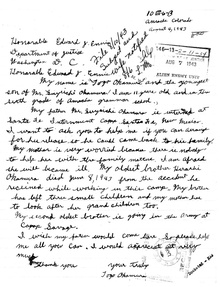 10E-6-B
Amache Colorado
August 4, 1943
Honorable Edward J. Ennis
Department of Justice
Washington D. C.
Honorable Edward J. Ennis
AUG 7 1943
ALIEN ENEMY UNIT
My name is Toyo Okamura and the youngest
son of Mr. Sukeyuki Okamura. I am 11 years old and in the
sixth grade of Amache grammar school.
My father Mr. Okamura is interned at
Santa Fe Internment Camp Santa Fe, New Mexico.
I want to ask you to help me if you can arrange
for his release so he can come back to his family.
My mother is very worried because there is nobody
to help her with the family matters. I am afraid
she will become ill. My oldest brother
Okamura died June 8, 1943 from the accident he
received while working in this camp. My brother
has left three small children and my mother has
to look after the children too.
My second oldest brother is going in the army at
Camp Savage.
I wish my father would come here. So please help
me all you can, I would appreciate it very
much.
Thank you
Yours truly,
Toyo Okamura